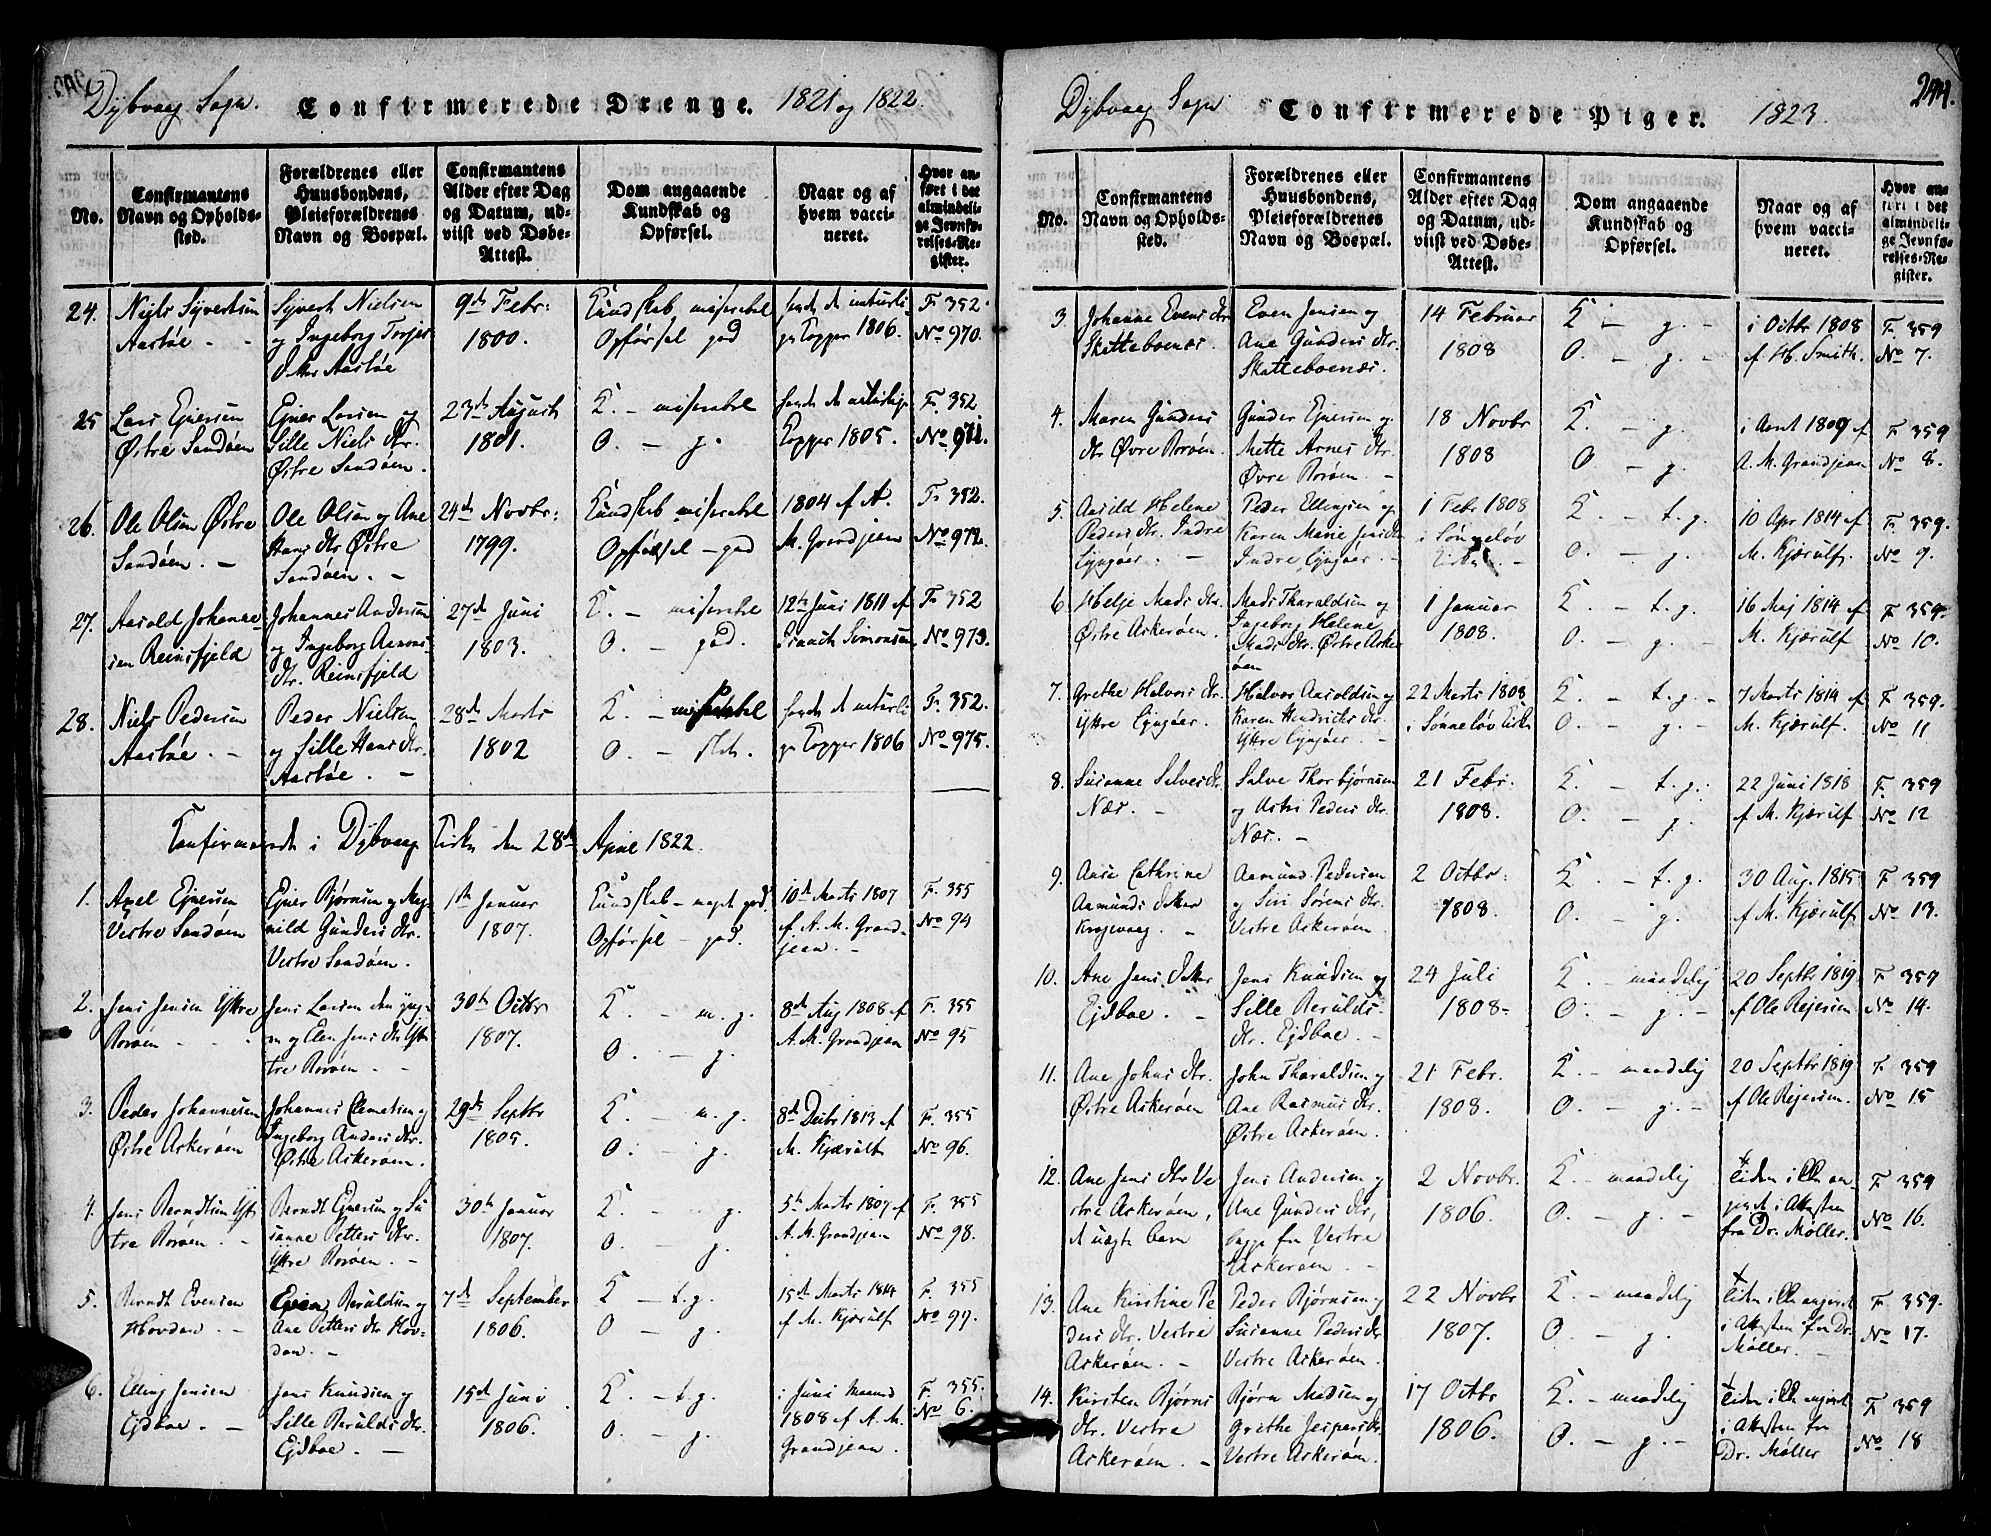 Dybvaag Sogn. Confirmerede Drenge. 1821 og 1822.
No.
Confirmantens
Navn og Opholds-
sted.
Forældrenes eller
Huusbondens,
Pleieforældrenes
Navn og Boepæl.
Confirmantens
Alder efter Dag
og Datum, ud-
viist ved Døbe-
Attest.
Dom angaaende
Kundskab og
Opførsel.
Naar og af
hvem vacci-
neret.
Hvor an-
ført i det
almindeli-
ge Jevnfø-
relses-Re-
gister.
24.
Niels Syvertsen
Aastøe
Syvert Nielsen
og Ingeborg Torjes
Aastøe
9de Febr:
1800.
Kundskab miserabel
Opførsel god
havt de naturli
ge Kopper 1806.
F. 352.
No 970.
25
Lars Ejersen
Østre Sandøen
Ejner Larsen og
Sille Niels dtr.
Østre Sandøen.
23de August
1801.
K. - miserabel
O. - g.
havt de naturlige
Kopper 1805.
F. 352
No 971.
26.
Ole Olsen Østre
Sandøen. -
Ole Olsen og Ane
Hans dtr Østre
Sandøen. -
24de Novbr:
1799.
Kundskab miserabel
Opførsel - god
1804 af A.
M. Grandjean
F. 352.
No 972.
27.
Aasold Johanne-
sen Reinsfjeld
Johannes Andersen
og Ingeborg Aanons
dtr. Reinsfjeld
27de Juni
1803.
K. - miserabel
O. - god.
12te Juni 1811 af
Simonsen
F. 352
No 973.
28.
Niels Pedersen
Aastøe. -
Peder Nielsen
og Sille Hans dtr.
Aastøe. -
28de Marts
1802
K. - miserabel
O - slet.
havt de naturli
ge Kopper 1806
F. 352.
No 975.
Confirmerede i Dybvaag Kirke den 28de April 1822.
1.
Axel Ejnersen
Vestre Sandøen
Ejner Bjørnsen og Mag
nild Gunders dtr.
Vestre Sandøen.
1ste Januar
1807.
Kundskab - meget god.
Opførsel - god.
10de Marts 1807
af A. M. Grand-
jean. -
F. 355
No 94
2.
Jens Jensen Yttre
Borøen
Jens Larsen den yng-
re og Elen Jens dtr Yt-
tre Borøen. -
30te Octbr
1807.
K. - m. g.
O. - g.
8de Aug 1808 af
A. M. Grandjean
F. 355
No 95
3.
Peder Johannesen
Østre Askerøen
Johannes Clemetsen og
Ingeborg Anders dtr.
Østre Askerøen.
29de Septbr
1805.
K. - m. g.
O. - g.
8de Decbr 1813 af
M. Kjærulf
F. 355
No 96.
4.
Jens Berndtsen Yt-
tre Borøen. -
Berndt Ejnersen og Su
sanne Petters dtr.
Yttre Borøen. -
30te Januar
1807.
K. - g.
O. - g.
5te Marts 1807 af
A. M. Grandjean
F. 355
No 98.
5.
Berndt Evensen
Hovdan. -
Even Beruldsen og
Ane Petters dtr Hov-
dan. -
7de September
1806.
K - t. g.
O - g.
15de Marts 1814
af M. Kjærulf
F. 355
No 99.
6.
Elling Jensen
Ejdboe -
Jens Knudsen og
Sille Berulds dtr.
Ejdboe. -
15de Juni
1806.
K. - t. g.
O. - g.
i Juni Maaned
1808 af A. M.
Grandjean.
F. 355.
No 6.
Dybvaag Sogn Confirmerede Piger. 1823. 244.
No.
Confirmantens
Navn og Opholds-
sted.
Forældrenes eller
Huusbondens,
Pleieforældrenes
Navn og Boepæl.
Confirmantens
Alder efter Dag
og Datum, ud-
viist ved Døbe-
Attest.
Dom angaaende
Kundskab og
Opførsel.
Naar og af
hvem vacci-
neret.
Hvor an-
ført i det
almindeli-
ge Jevnfø-
relses-Re-
gister.
3.
Johanne Evens dtr
Skatteboenes.
Even Jensen og
Ane Gunders dtr.
Skatteboenes.
14 Februar
1808
K. - g. -
O. - g. -
i Octbr 1808
af H. Smith.
F. 359
No 7.
4.
Maren Gunders
dtr Øvre Borøen.
Gunder Ejnersen og
Mette Arnes dtr.
Øvre Borøen. -
18 Novbr
1808
K. - g.
O - g.
1809 af
A. M. Grandjean
F. 359
No 8.
5.
Aasild Helene
Peders dtr. Indre
Lyngøer. -
Peder Ellingsen og
Karen Marie Jens dtr
Indre Lyngøer. -
1 Febr 1808
i Sønneløv
Kirke. -
K. - t. g.
O. - g.
10 Apr 1814 af
M. Kjærulf.
F. 359.
No 9.
6.
Helje Mads dtr.
Østre Askerøen.
Mads Tharaldsen og
Ingeborg Helene
Mads dtr. Østre Asker
øen
1 Januar
1808.
K. - t. g.
O. - g.
16 Maj 1814 af
M. Kjærulf
F. 359.
No 10.
7.
Grethe Halvors dtr.
Yttre Lyngøer.
Halvor Aasoldsen og
Karen Hendricks dtr.
Yttre Lyngøer. -
22 Marts 1808
i Sønneløv Kirke
K. - t. g. -
O. - g. -
7 Marts 1814 af
M. Kjærulf.
F. 359.
No 11
8.
Susanne Salves dtr
Næs. -
Salve Thorbjørnsen
og Astri Peders dtr.
Næs. -
21 Febr.
1808.
K. - t. g.
O. - g.
22 Juni 1818
af M. Kjærulf
F. 359
No 12
9.
Anne Cathrine
Aamunds Datter
Krogevaag. -
Aamund Pedersen
og Siri Sørens dtr.
Vestre Askerøen
2 Octbr:
1808.
K. - t. g.
O. - g.
30 Aug. 1815
af M. Kjærulf
F. 359
No 13.
10.
Ane Jens Datter
Ejdboe. -
Jens Knudsen og
Sille Berulds-
dtr. Ejdboe. -
24 Juli
1808-
K. - maadelig
O. - g. -
20 Septbr 1819
af Ole Rejersen
F. 359
No 14.
11.
Ane Johns dtr.
Østre Askerøen
John Tharaldsen og
Ane Rasmus dtr.
Østre Askerøen.
21 Febr.
1808.
K. - maadelig
O. - g. -
20 Septbr 1819
af Ole Rejersen.
F. 359
No 15
12.
Ane Jens dtr Ve
stre Askerøen,
et uægte barn
Jens Andersen og
Ane Gunders dtr,
begge fra Vestre
Askerøen. -
2 Novbr.
1806.
K. - maadelig
O. - g. -
Tiden ikke an-
givet i Attesten
fra Dr. Møller.
F. 359
No 16.
13.
Ane Kirstine Pe
ders dtr. Vestre
Askerøen. -
Peder Bjørnsen og
Susanne Peders dtr
Vestre Askerøen.
22 Novbr
1807.
K. - maadelig
O. - g.
Tiden ikke angivet
i Attesten fra Dr.
Møller.
F. 359.
No 17.
14.
Kirsten Bjørns
dtr. Vestre
Askerøen. -
Bjørn Madsen og
Grethe Jespers dtr.
Vestre Askerøen.
17 Octbr
1806.
K. - maadelig
O. - g. -
Tiden ikke angivet
i Attesten fra
Dr. Møller
F. 359
No 18